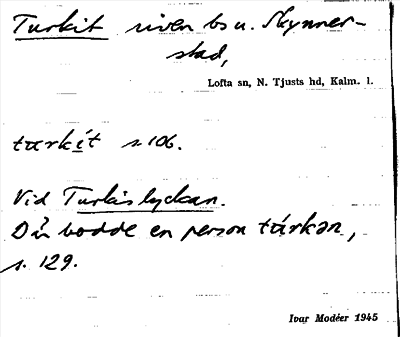 Turkit riven bs u. Skynner-
stad,
Lofta sn, N. Tjusts hd, Kalm. l.
turkít s. 106.
Vid Turkåslyckan.
Där bodde en person túrkən,
s. 129.
Ivar Modéer 1945